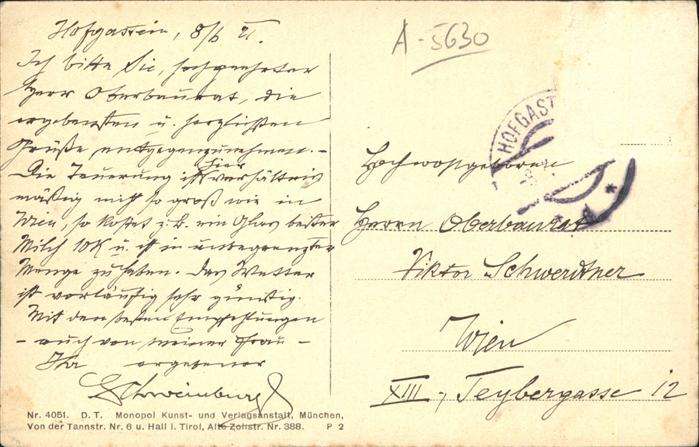 Hofgastein, 8/6 21.
Ich bitte Sie, hochgeehrter
Herr Oberbaurat, die
ergebensten u. herzlichsten
Grüße, entgegenzunehmen. -
Die Teuerung ist hier verhältnis
mäßig nicht so groß wie in
Wien, so kostet z.b. ein Glas bester
Milch 10K u. ist in unbegrenzter
Menge zu haben. Das Wetter
ist vorläufig sehr günstig.
Mit den besten Empfehlungen
- auch von meiner Frau -
Ihr ergebener
Schweinburg
Nr. 4051. D. T. Monopol Kunst- und Verlagsanstalt, München,
Von der Tannstr. Nr. 6 u. Hall i. Tirol, Alte Zollstr. Nr. 388. P 2
A-5630
HOFGAST
Hochwohlgeboren
Herrn Oberbaurat
Viktor Schwerdtner
Wien
XIII., Teybergasse 12